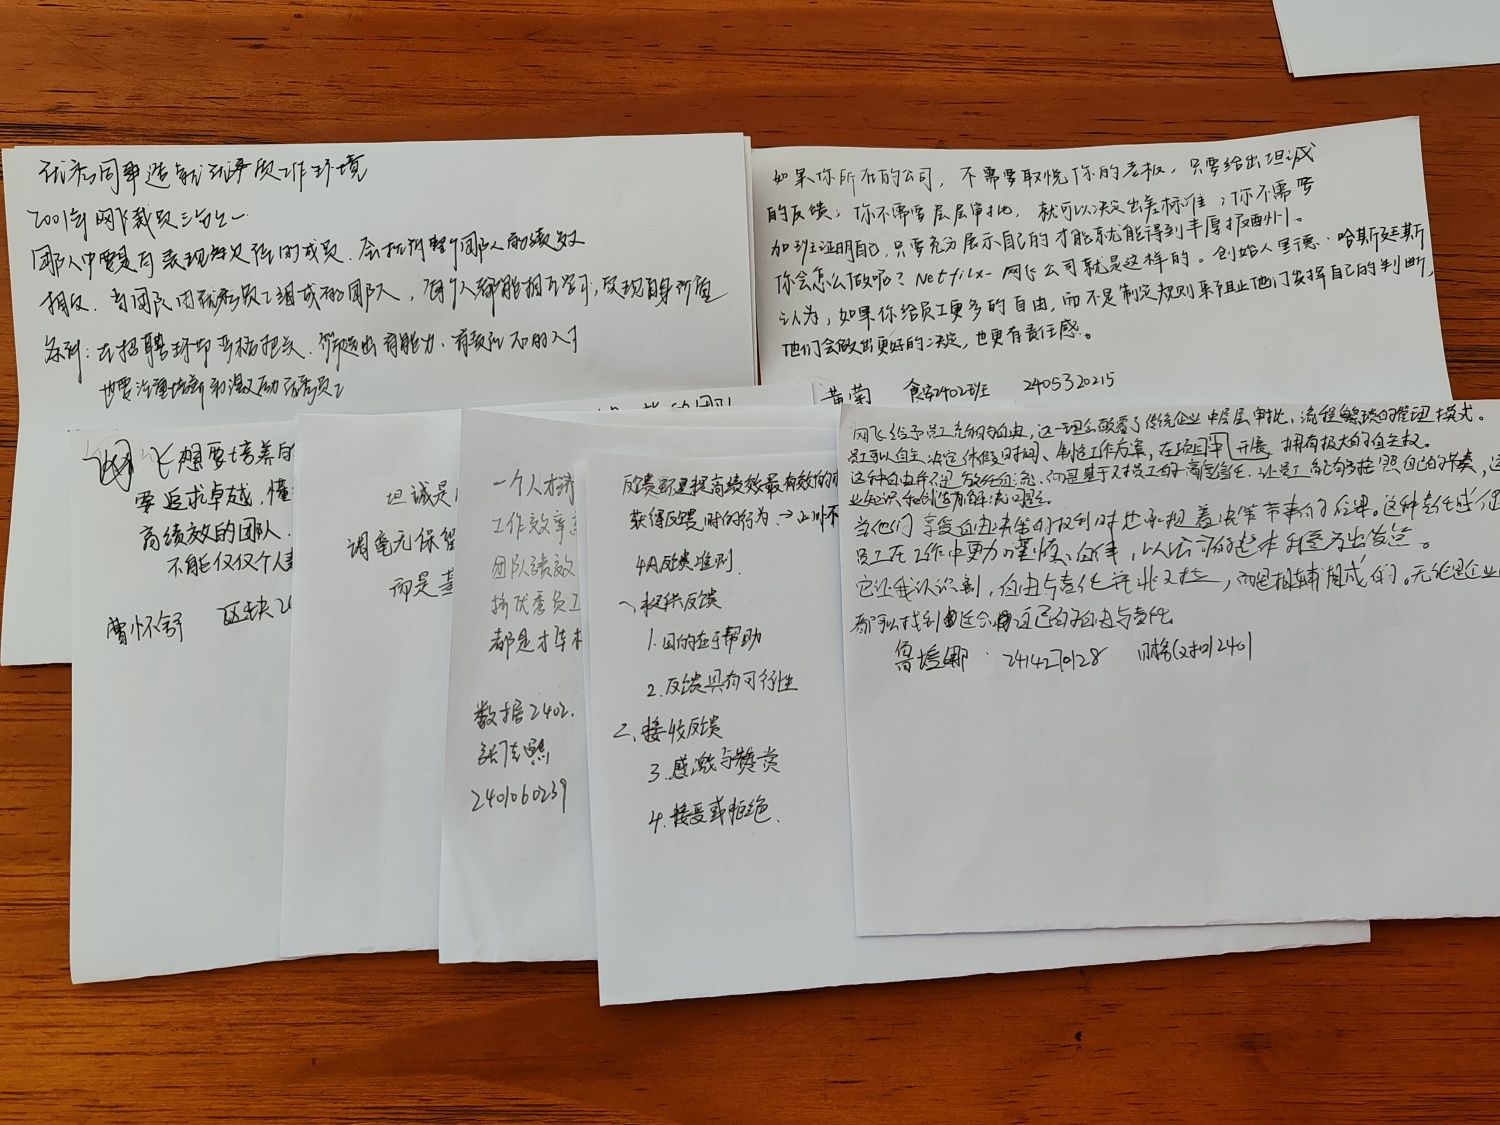 优秀同事造就优质工作环境
2001年网飞裁员三分之一
团队中要是有表现欠佳的成员,会拉低整个团队的绩效
相反,当团队由优秀员工组成的团队,每个人都能相互学习,发现自身价值
条列:在招聘环节严格把关,筛选出有能力、有责任心的人才
也要注重培新和激励优秀员工
如果你所在的公司,不需要取悦你的老板,只要给出坦诚
的反馈;你不需要层层审批,就可以决定出差标准;你不需要
加班证明自己,只要充分展示自己的才能就能得到丰厚报酬。
你会怎么做呢?Netfilx-网飞公司就是这样的。创始人里德·哈斯廷斯
认为,如果你给员工更多的自由,而不是制定规则来阻止他们发挥自己的判断,
他们会做出更好的决定,也更有责任感。
黄菊 食安2402班 2405320215
的团队
网飞想要培养的
要追求卓越,懂
高绩效的团队
不能仅仅个人
曹怀舒 区块
坦诚是
调毫无保留
而是
一个人才
工作效率
团队绩效
挤优秀员工
都是才华
数据2402.
张
2401060239
反馈环是提高绩效最有效的
获得反馈时的行为.→
4A反馈准则
一、提供反馈
1.目的在于帮助
2.反馈具有可行性
二、接收反馈
3.感激与赞赏
4.接受或拒绝.
网飞给予员工充分的自由,这一理念颠覆了传统企业中层层审批、流程繁琐的管理模式。
员工可以自主决定休假时间、制定工作方案,在项目中开展拥有极大的自主权。
这种自由并不是放任自流,而是基于对员工的高度信任,让员工能够按照自己的节奏,
业知识和创造力解决问题。
当他们享受自由决策的权利时也承担着决策带来的后果。这种责任感促
员工在工作中更加谨慎、自律,以公司的整体利益为出发点。
它让我认识到,自由与责任并非对立,而是相辅相成的。无论是企业
都可以找到适合自己的自由与责任。
鲁 2414270128 2401